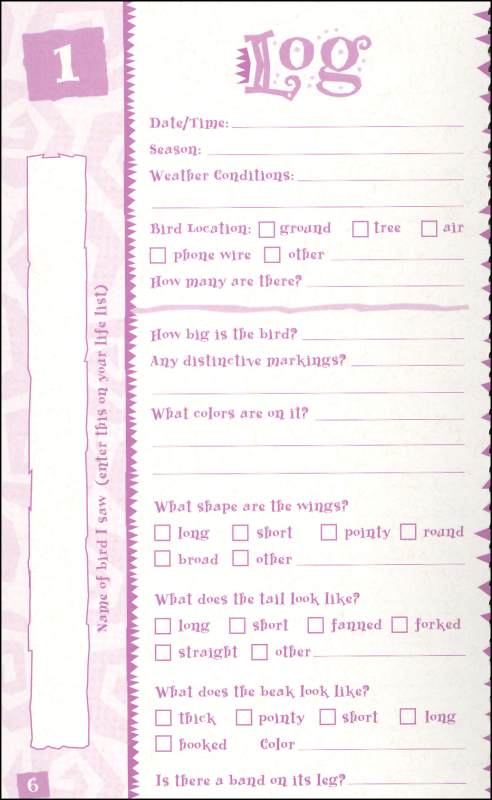 1
Log
Date/Time:
Season:
Weather Conditions:
Bird Location: ground tree air
phone wire other
How many are there?
How big is the bird?
Any distinctive markings?
What colors are on it?
What shape are the wings?
long short pointy round
broad other
What does the tail look like?
long short fanned forked
straight other
What does the beak look like?
thick pointy short long
hooked Color
Is there a band on its leg?
Name of bird I saw (enter this on your life list)
6